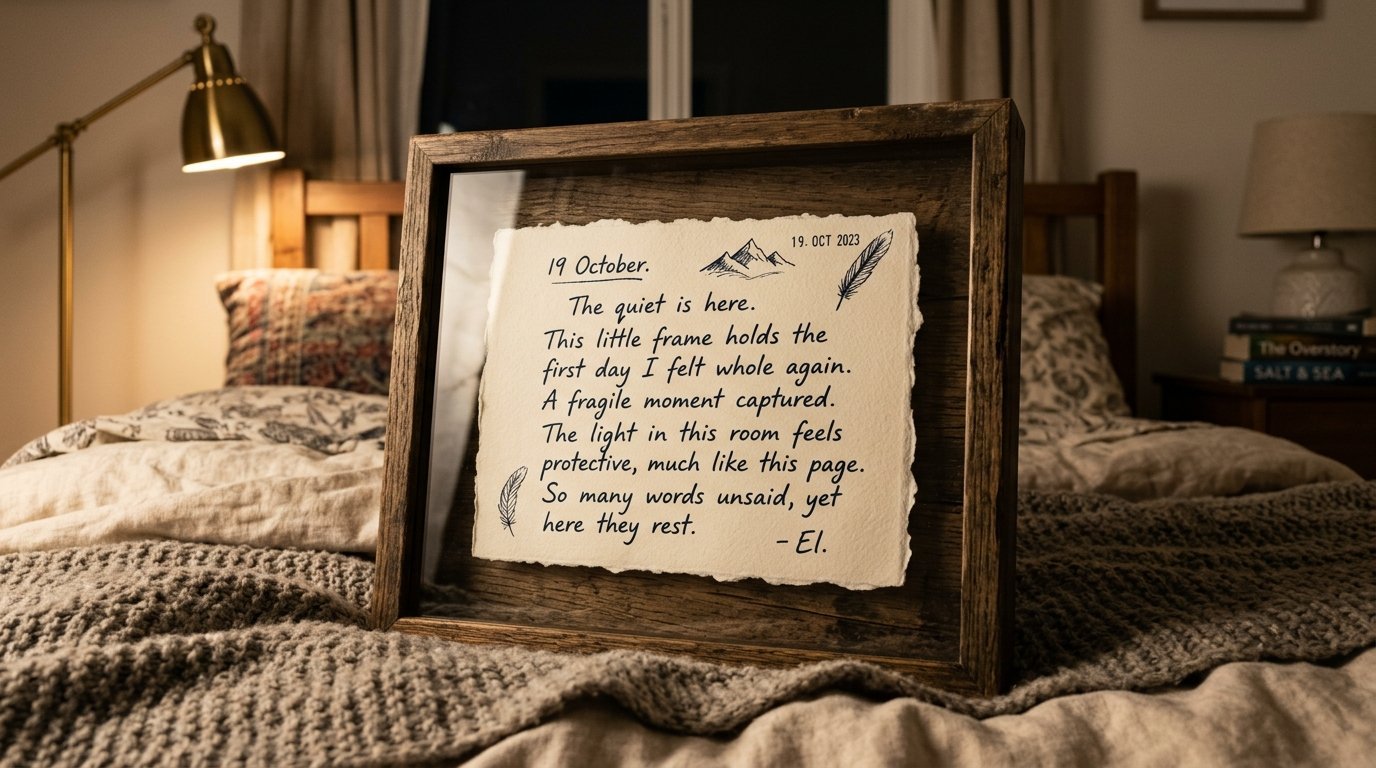 19. OCT 2023
19 October.
The quiet is here.
This little frame holds the
first day I felt whole again.
A fragile moment captured.
The light in this room feels
protective, much like this page.
So many words unsaid, yet
here they rest.
- El.
The Overstory
SALT & SEA